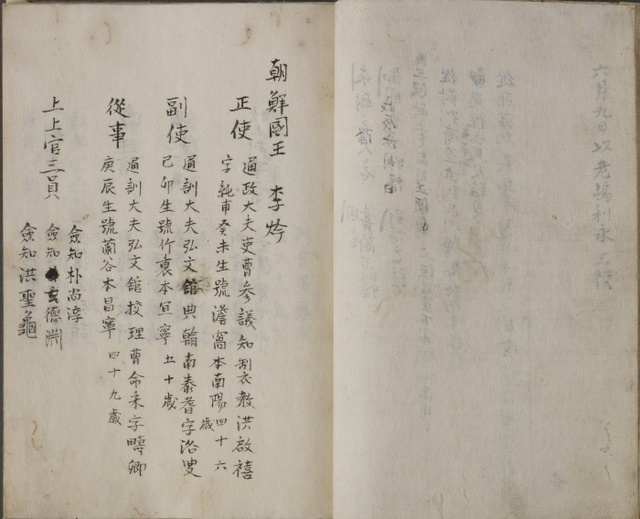 朝鮮國王 李昑
正使 通政大夫吏曹參議知製教洪啟禧
字純甫癸未生號澹窩本南陽四十六歲
副使 通訓大夫弘文舘典翰南泰耆字洛叟
己卯生號竹裏本宜寧 五十歲
從事 通訓大夫弘文舘挍理曹命采字疇卿
庚辰生號蘭谷本昌寧 四十九歲
上上官三員 僉知朴尚淳
僉知玄德淵
僉知洪聖龜